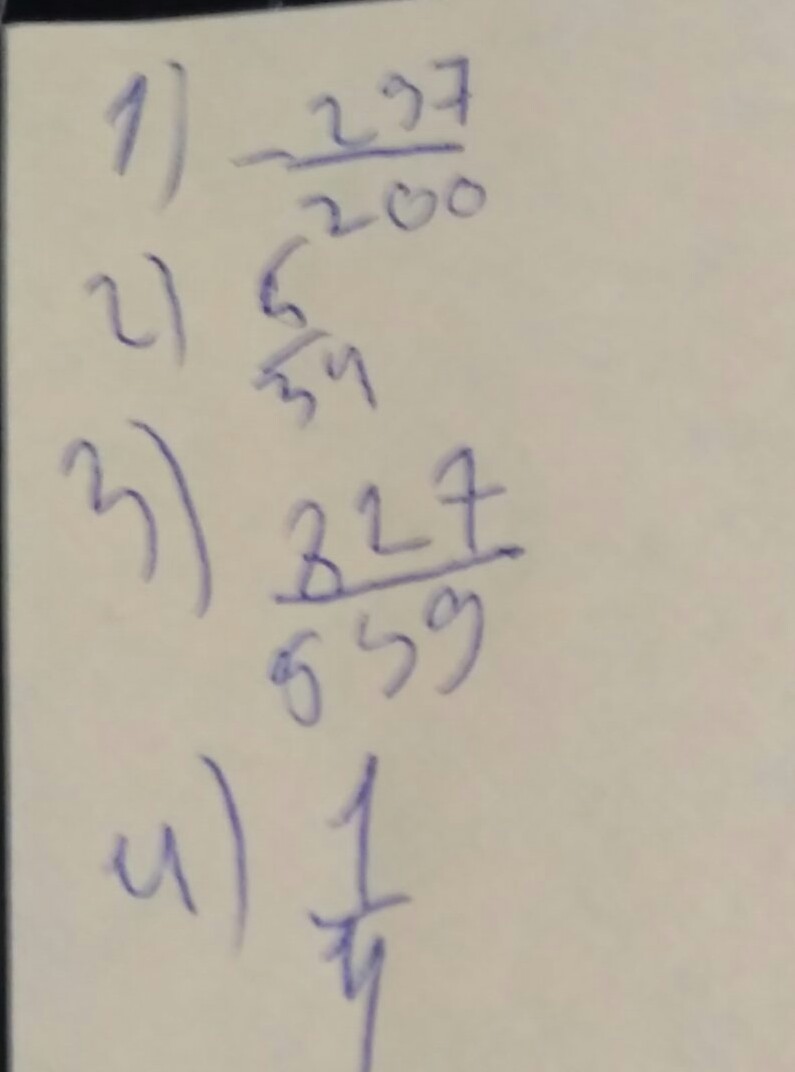 1) - 297
200
2) 5
34
3) 327
559
4) 1
4